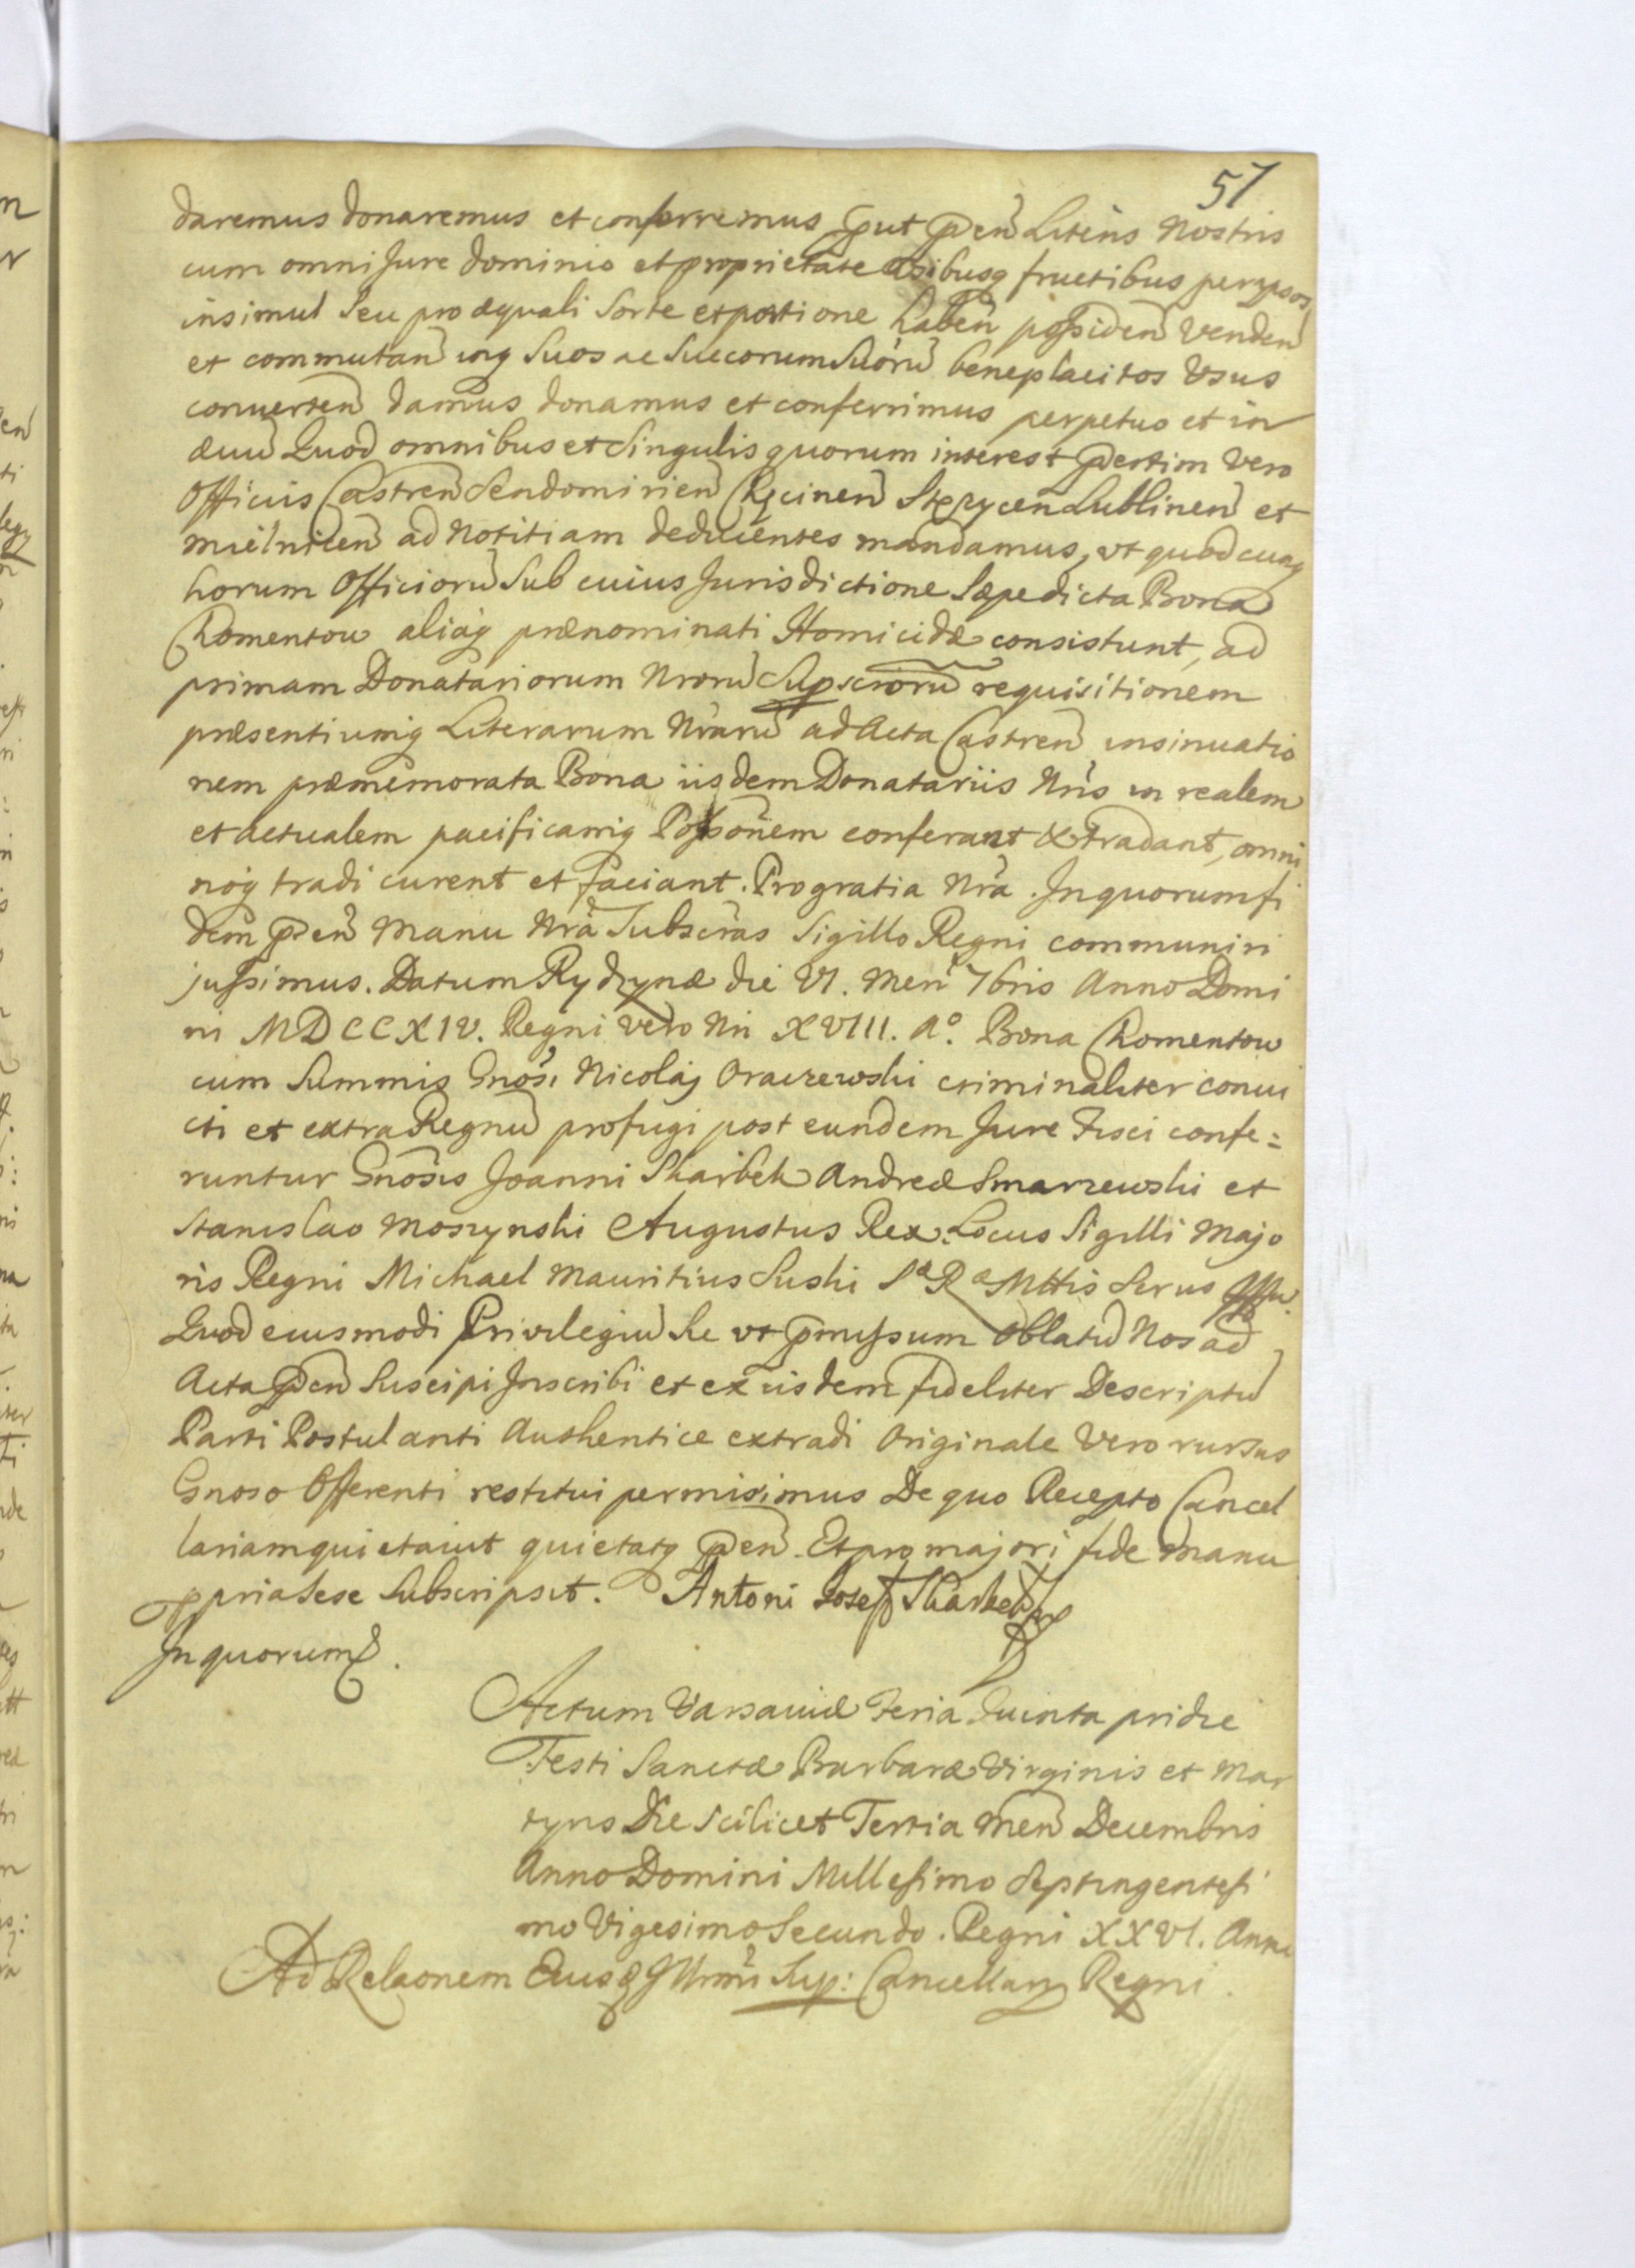 57
daremus donaremus et conferremus put pñ Literis Nostris
cum omni Jure dominio et proprietate usibusq fructibus per ipsos
insimul Seu pro æquali Sorte et portione haben̄ possiden̄ venden̄
et commutan̄ inq Suos ac Succorum Suorū beneplacitos Usus
conuerten̄ damus donamus et conferrimus perpetuo et in
æuū Quod omnibus et Singulis quorum interest pñsertim Vero
Officiis Castren̄ Sendomirien̄ Chęcinen̄ Stęzycen̄ Lublinen̄ et
mielnicen̄ ad Notitiam deducentes mandamus, vt quodcunq
horum Officiorū Sub cuius Jurisdictione Sæpedicta Bona
Chomentow aliaq prænominati Homicidæ consistunt, ad
primam Donatariorum Nrorū Supscrorū requisitionem
præsentiumq Literarum Nrarū ad Acta Castren̄ insinuatio
nem præmemorata Bona iisdem Donatariis Nris in realem
et actualem pacificamq Possonem conferant & tradant, omni
noq tradi curent et faciant. Pro gratia Nra. In quorum fi
dem pñ Manu Nra Subscras Sigillo Regni communiri
jussimus. Datum Rydzynæ die VI. Men̄ 7bris Anno Domi
ni MDCCXIV. Regni vero Nri XVIII. A°. Bona Chomentow
cum Summis Gnosi Nicolaj Oraczewski criminaliter conui
cti et extra Regnū profugi post eundem Jure Fisci confe=
runtur Gnosis Joanni Skarbek Andreæ Smarzewski et
Stanislao Moszynski Augustus Rex. Locus Sigilli Majo
ris Regni Michael Mauritius Suski S R Mttis Secrus
Quod eiusmodi Privilegiū Se vt præmissum Oblatū Nos ad
Acta pñ Suscipi Inscribi et ex iisdem fideliter Descriptū
Parti Postulanti Authentice extradi Originale Vero rursus
Gnoso Offerenti restitui permisimus De quo Recepto Cancel
lariam quietauit quietatq pñ. Et pro majori fide manu
ppria Sese Subscripsit. Antoni Josef Skarbek
In quorum.
Actum Varsauiæ Feria Quinta pridie
Festi Sanctæ Barbaræ Virginis et Mar
tyris Die Scilicet Tertia Men̄ Decembris
Anno Domini Millesimo Septingentesi
mo Vigesimo Secundo. Regni XXVI. Anno
Ad Relaonem Eiusd Illrmi Sup: Cancellarij Regni.